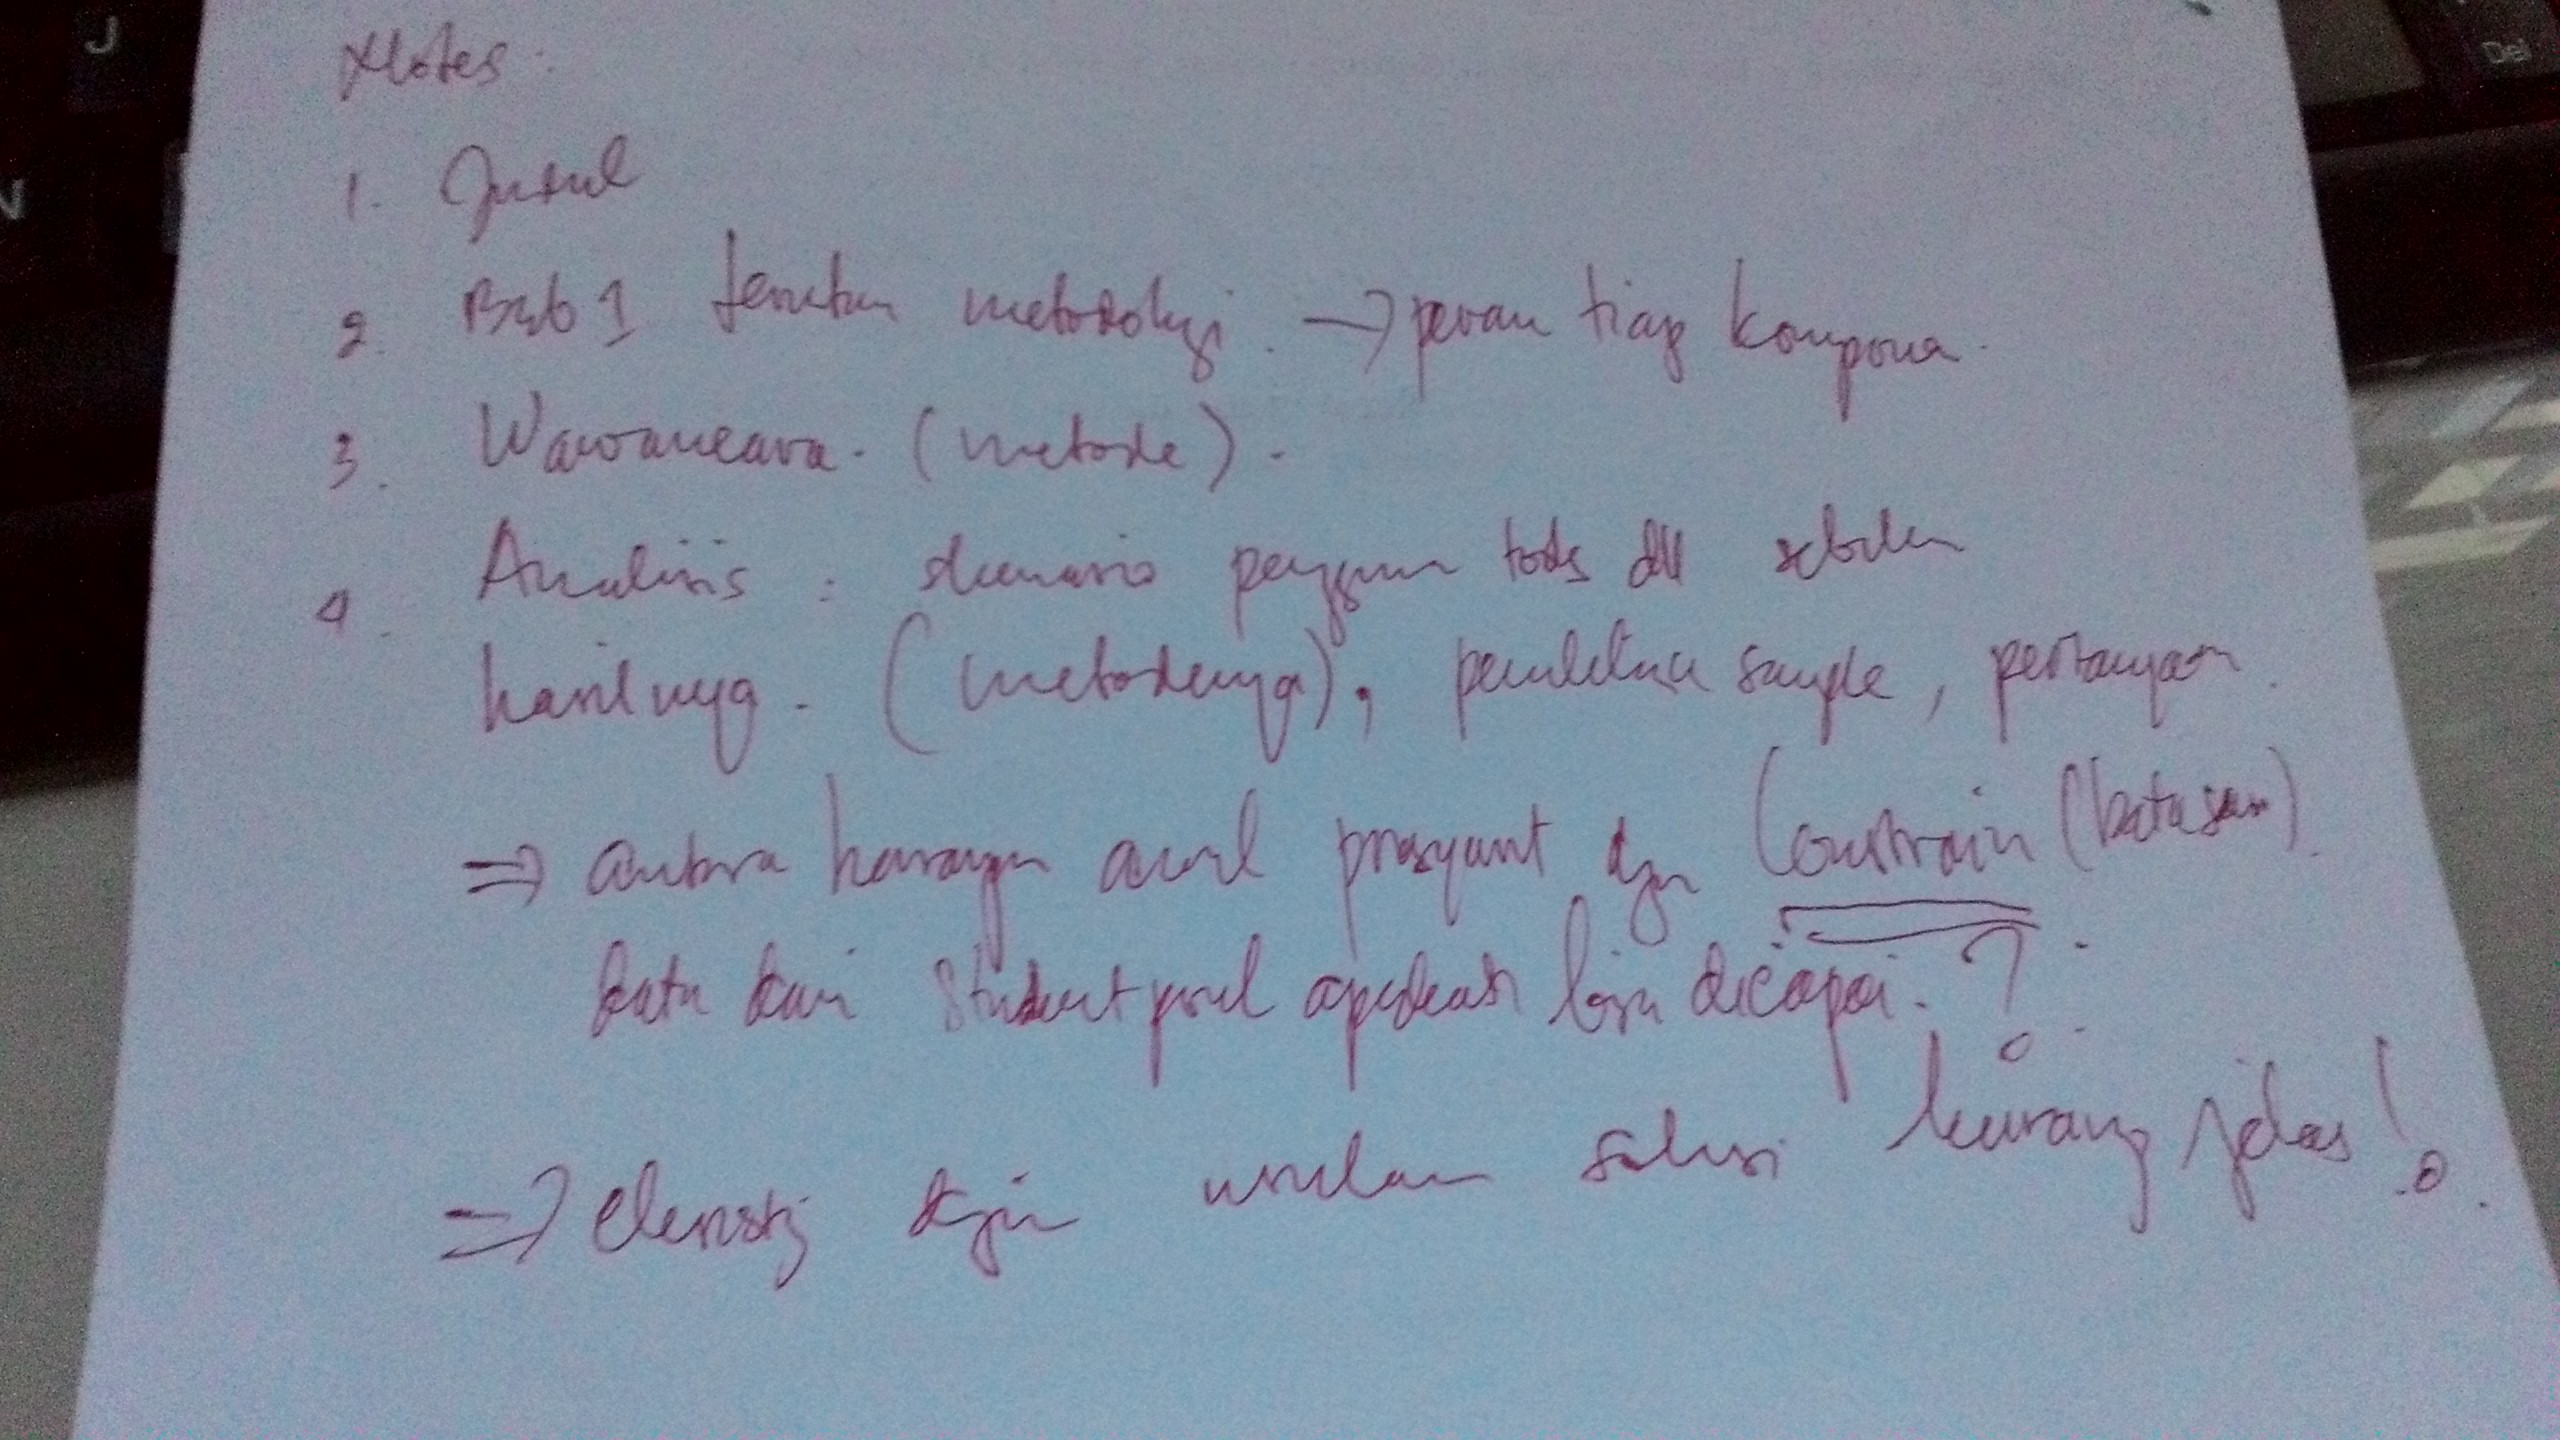 Notes :
1. Judul
2. Bab 1 tentukan metodologi. → peran tiap kompona.
3. Wawancara. (metode).
4. Analisis : skenario penggunaan tools dll sebelum
hasilnya. (metodenya), pemilihan sample, pertanyaan.
⇒ antara harapan awal prasyarat dgn Constrain (batasan).
kata dari Student portal apakah bisa dicapai. ?
⇒ dgn usulan solusi kurang jelas!
J
N
Del